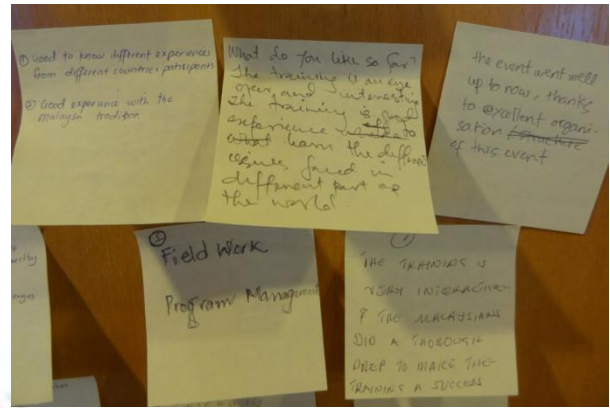 ① Good to know different experiences
from different countries patisipants
② Good experience with the
malaysia tradition
What do you like so far?
The training is an eye
oper and interesting
The training is good
experience to
learn the different
issues faced in
different part of
the world
the event went well
up to now, thanks
to excellent organi-
sation structure
of this event
③
Field Work
Program Management
THE TRAINING IS
VERY INTERACTIVE
& THE MALAYSIANS
DID A THOROUGH
PREP TO MAKE THE
TRAINING A SUCCESS